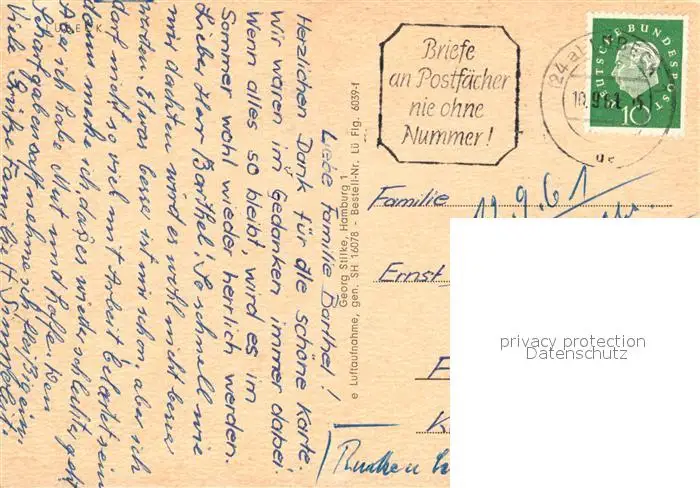 LÜBECK
Liebe Familie Barthel!
Herzlichen Dank für die schöne Karte.
Wir waren im Gedanken immer dabei.
Wenn alles so bleibt, wird es im
Sommer wohl wieder herrlich werden.
Liebe Herr Barthel! So schnell wie
wir dachten wird es wohl nicht besser
werden. Etwas besse ist mir schon, aber ich
darf nicht so viel mit Arbeit belastet sein
dann merke ich, daß es wieder schlechter geht
Aber ich habe Mut und hoffe. Den
Viele Grüße Familie H.
Georg Stilke, Hamburg 1
e Luftaufnahme, gen. SH 16078 - Bestell-Nr. Lü Flg. 6039-f
Briefe
an Postfächer
nie ohne
Nummer!
(24a) LÜBECK
10.9.61
DEUTSCHE BUNDESPOST
10
Familie
12.9.61
Ernst
privacy protection
Datenschutz